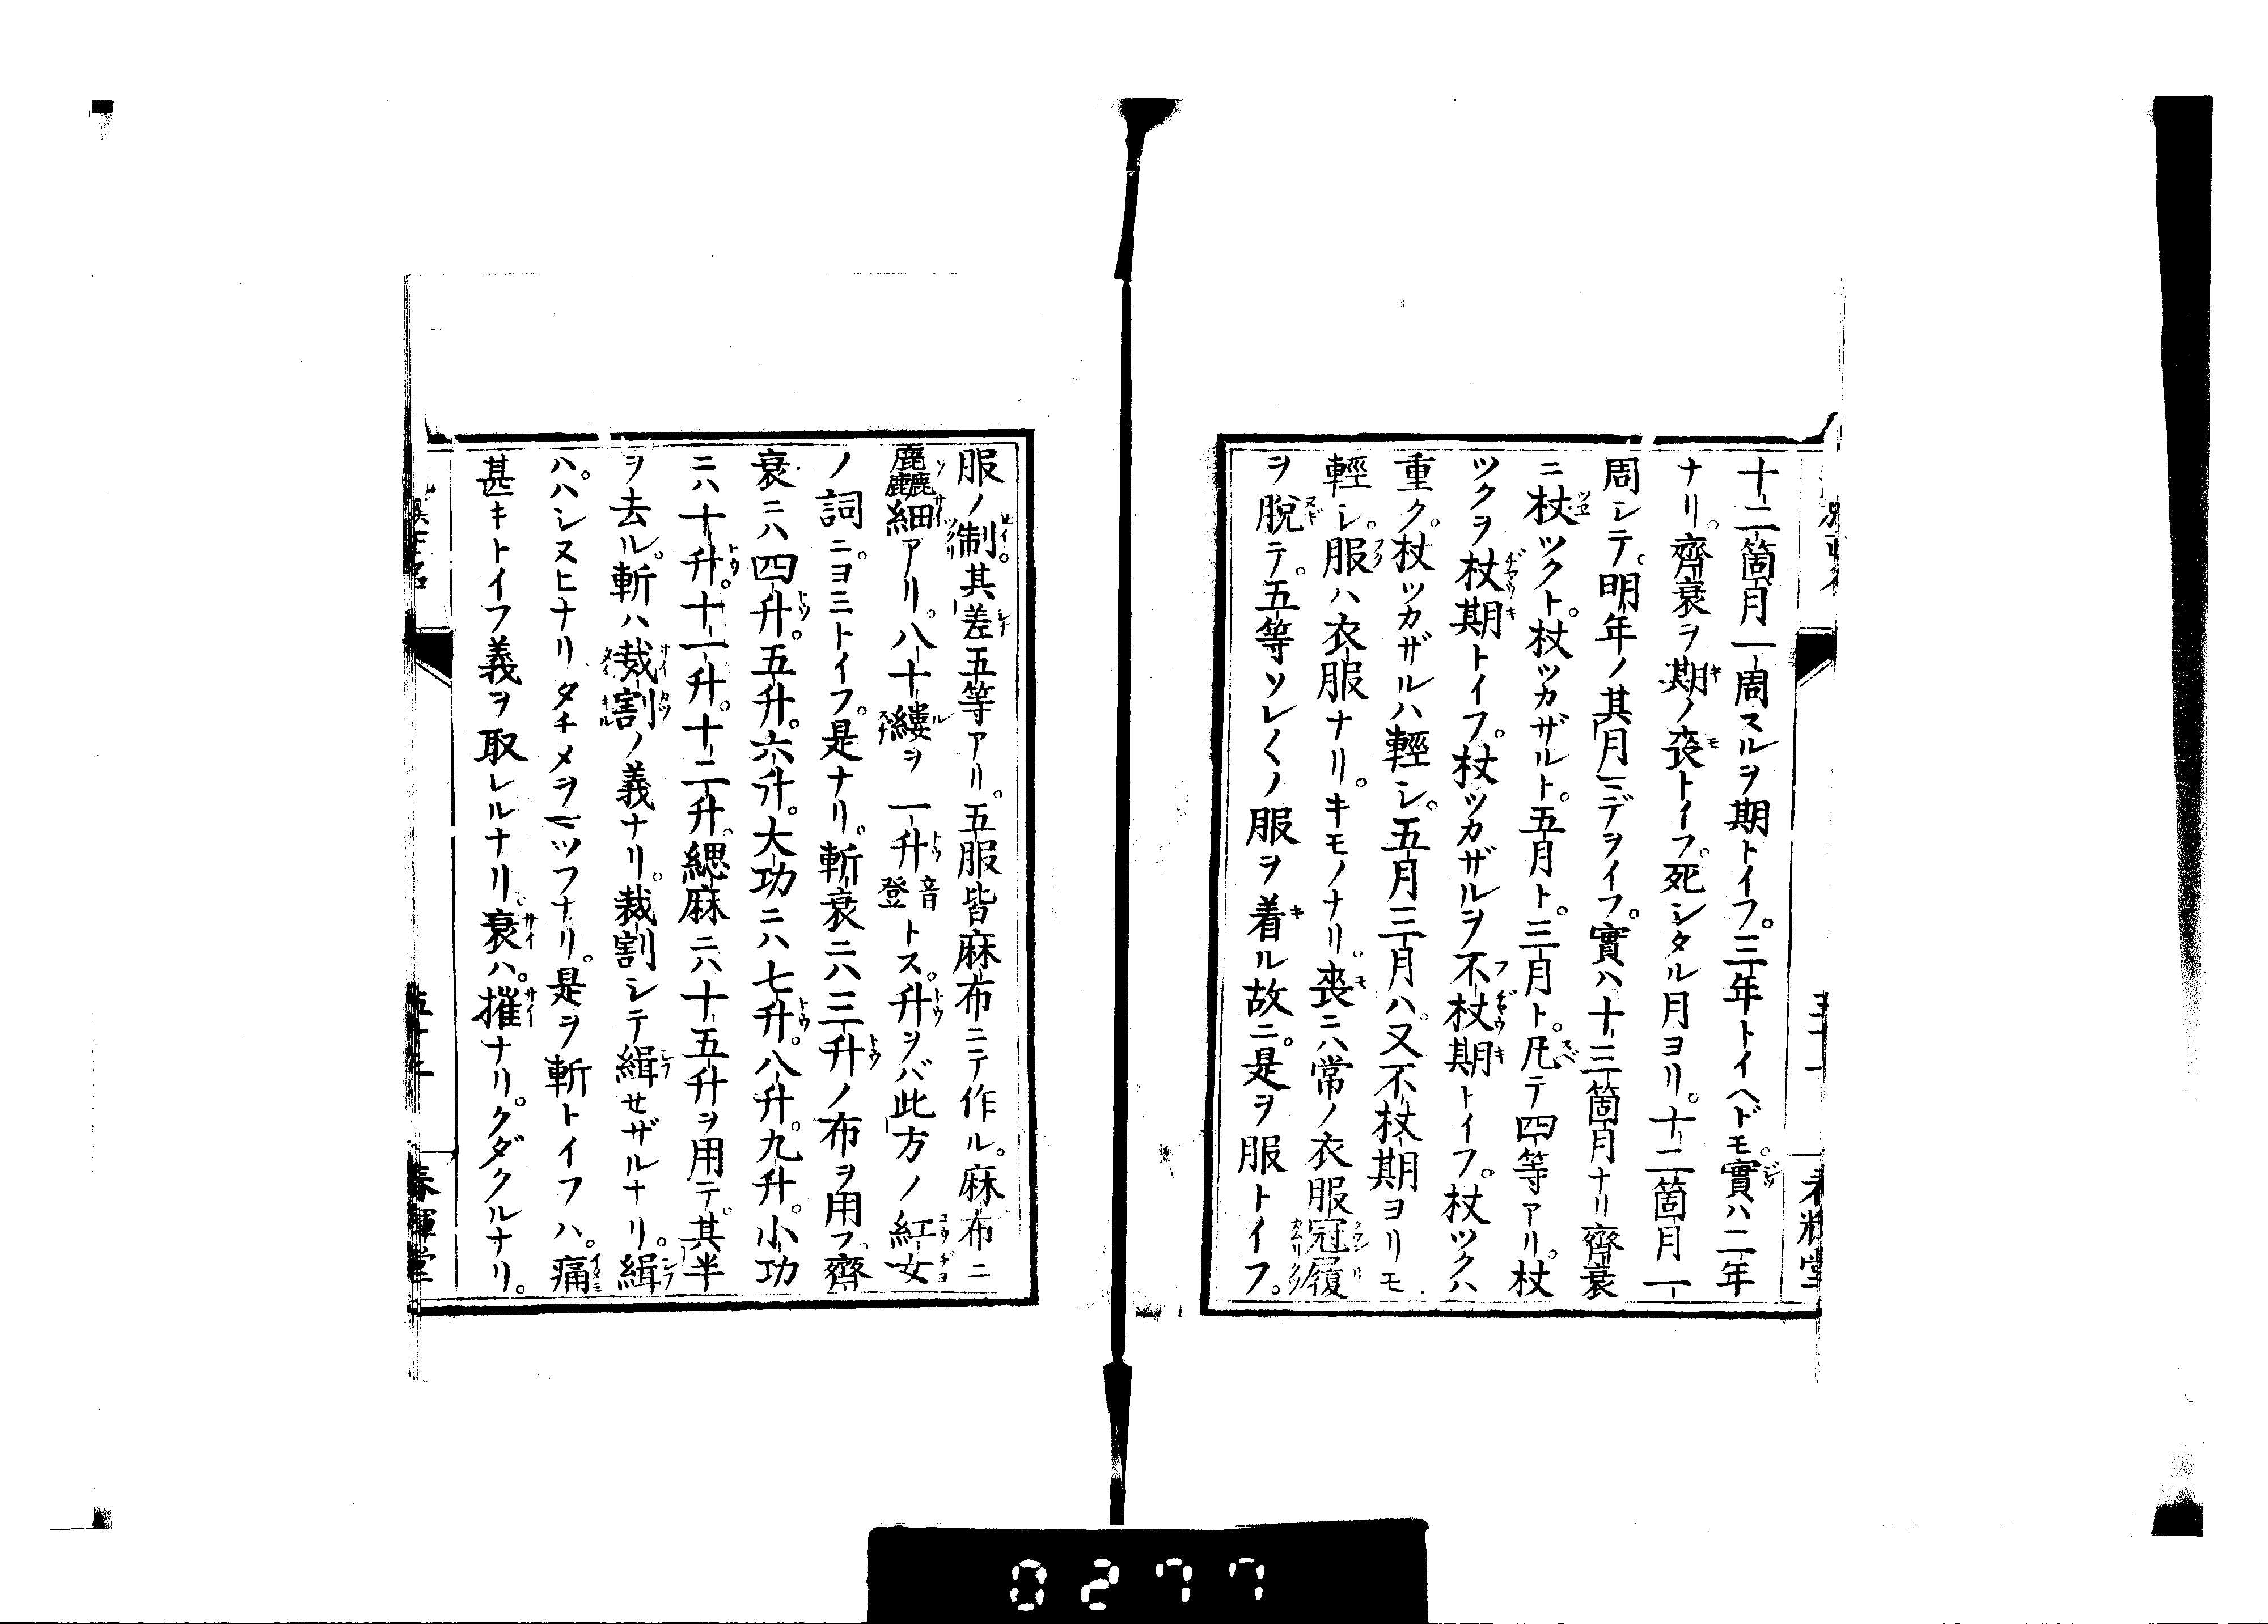 十二箇月一周スルヲ期トイフ。三年トイヘドモ。實ハ二年
ナリ。齊衰ヲ期ノ喪トイフ。死シタル月ヨリ。十二箇月一
周シテ。明年ノ其月マデヲイフ。實ハ十三箇月ナリ齊衰
ニ杖ツクト。杖ツカザルト。五月ト。三月ト。凡テ四等アリ。杖
ツクヲ杖期トイフ。杖ツカザルヲ不杖期トイフ。杖ツクハ
重ク。杖ツカザルハ輕シ。五月三月ハ。又不杖期ヨリモ
輕シ。服ハ衣服ナリ。キモノナリ。喪ニハ常ノ衣服冠履
ヲ脫テ。五等ソレ〱ノ服ヲ着ル故ニ。是ヲ服トイフ。
服ノ制。其差五等アリ。五服皆麻布ニテ作ル。麻布ニ
麤細アリ。八十縷ヲ一升音登トス。升ヲバ此方ノ紅女
ノ詞ニ。ヨミトイフ。是ナリ。斬衰ニハ三升ノ布ヲ用フ。齊
衰ニハ四升。五升。六升。大功ニハ七升。八升。九升。小功
ニハ十升。十一升。十二升。緦麻ニハ十五升ヲ用テ。其半
ヲ去ル。斬ハ裁割ノ義ナリ。裁割シテ緝セザルナリ。緝
ハ。ハシヌヒナリ。タチメヲマツフナリ。是ヲ斬トイフハ。痛
甚キトイフ義ヲ取レルナリ。衰ハ。摧ナリ。クダクルナリ。
春輝堂
0277